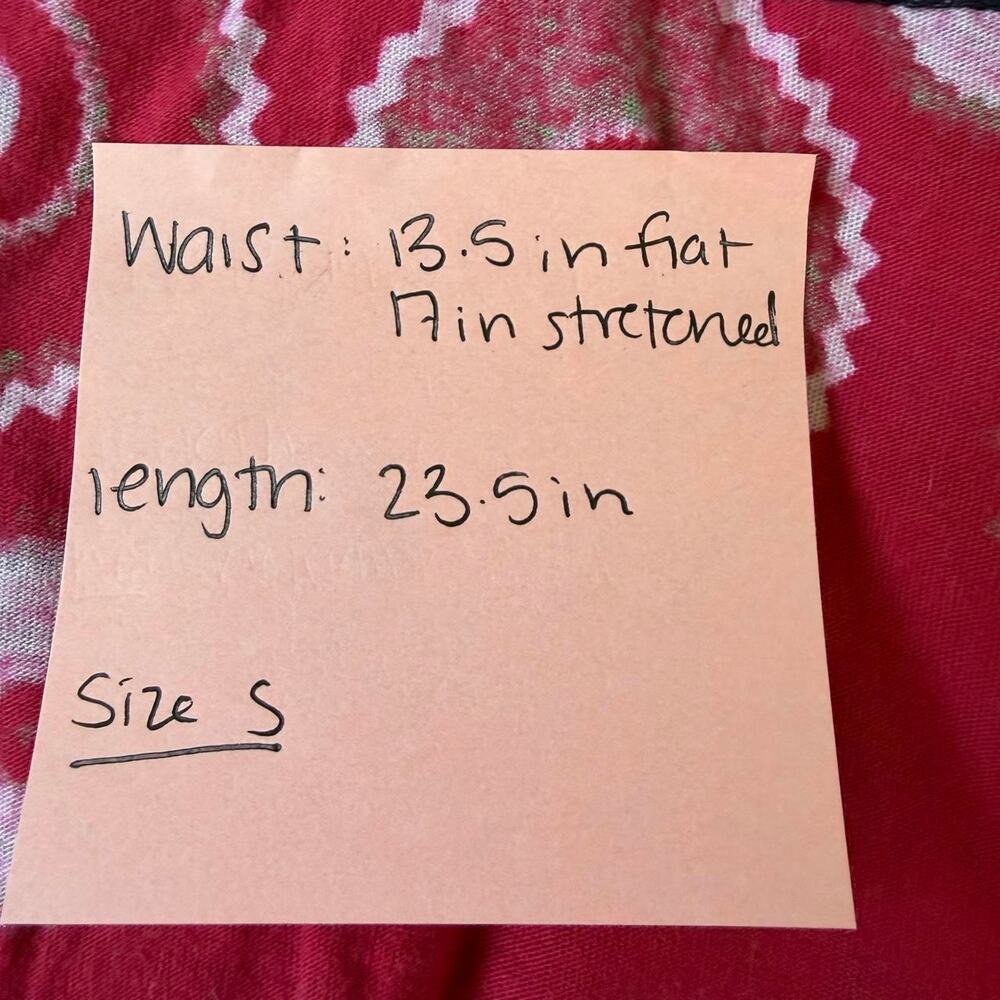 Waist: 13.5 in flat
17 in stretched
length: 23.5 in
Size S